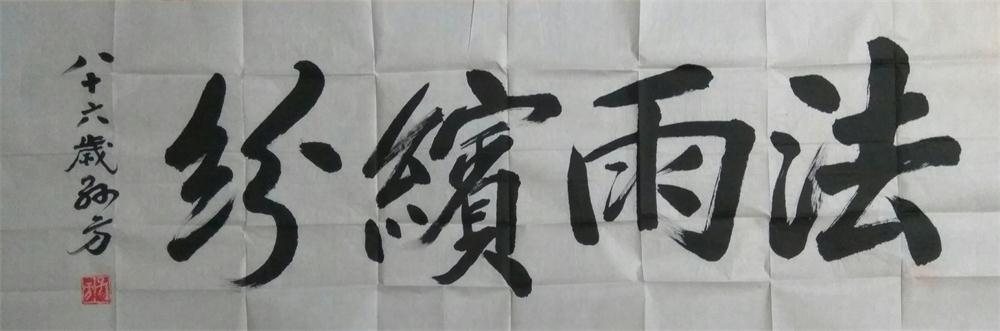 法雨繽紛
八十六歲孫方